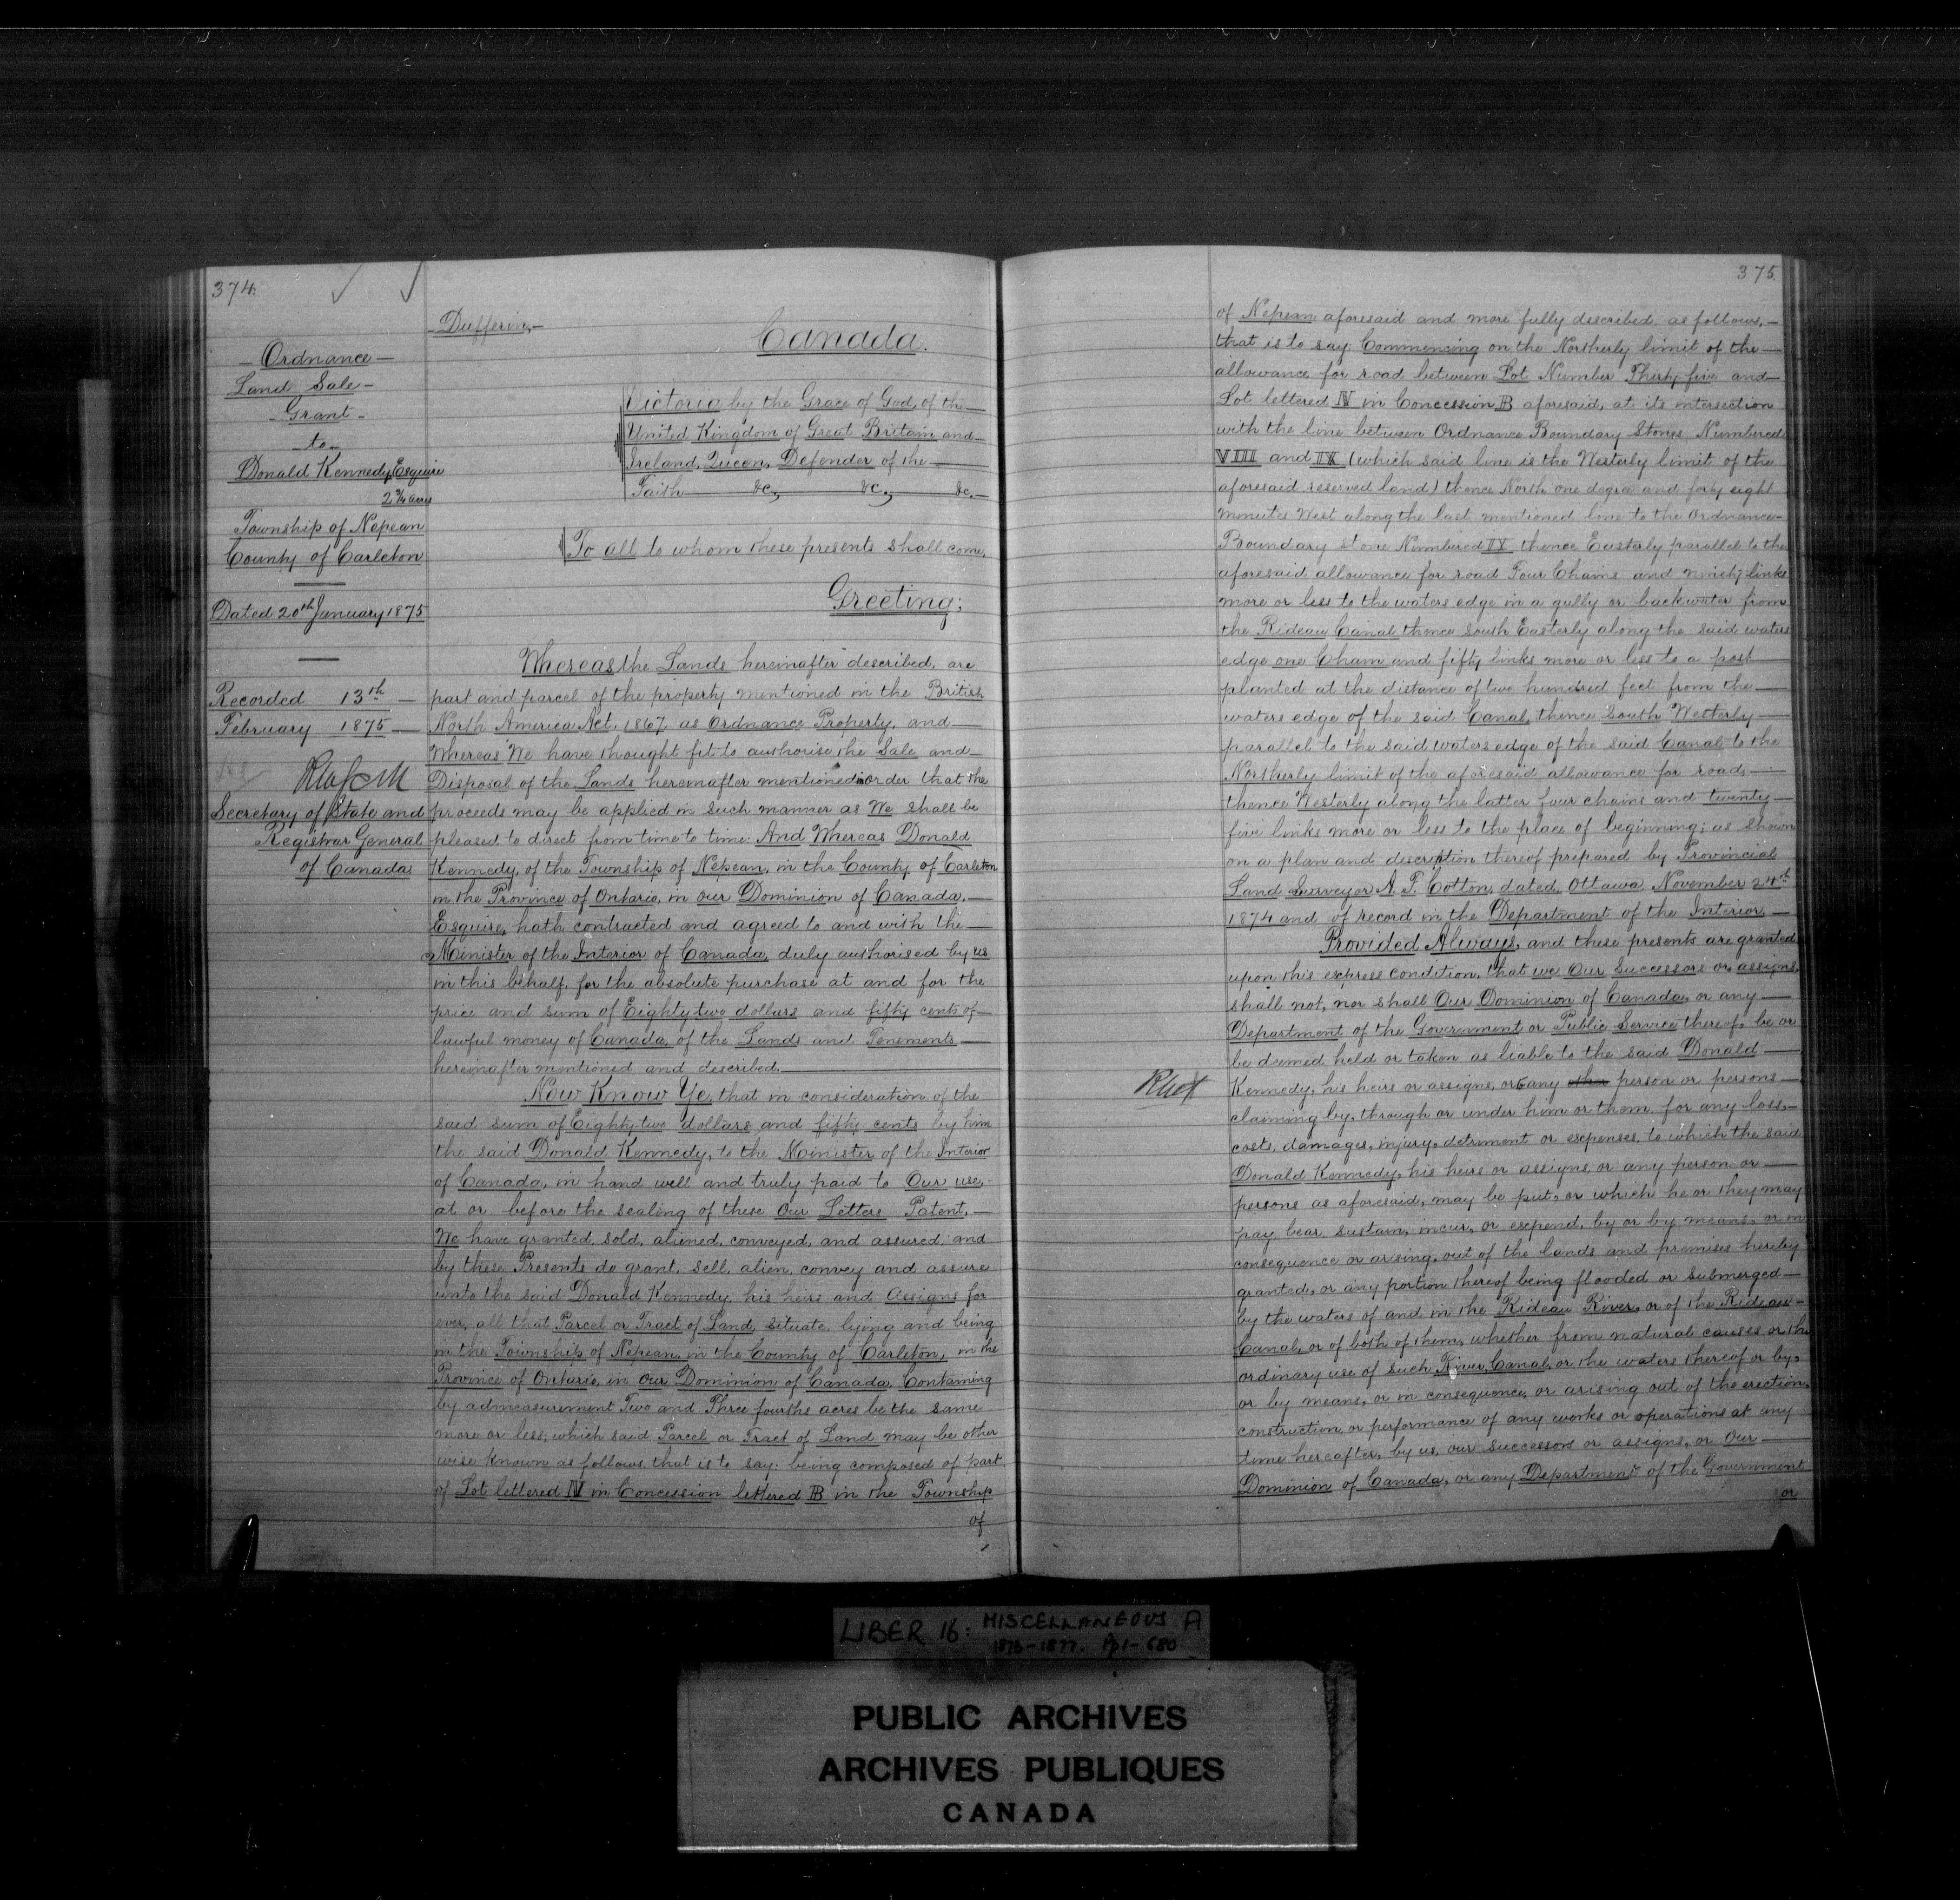 374.
Ordnance
Land Sale
Grant
to
Donald Kennedy, Esquire
2 3/4 acres
Township of Nepean
County of Carleton
Dated 20th January 1875
Recorded 13th
February 1875
Secretary of State and
Registrar General
of Canada
Dufferin,
Canada.
Victoria by the Grace of God, of the
United Kingdom of Great Britain and
Ireland, Queen, Defender of the
Faith &c, &c, &c.
To all to whom these presents shall come,
Greeting;
Whereas the Lands hereinafter described, are
part and parcel of the property mentioned in the British
North America Act, 1867, as Ordnance Property, and
Whereas We have thought fit to authorise the Sale and
Disposal of the Lands hereinafter mentioned in order that the
proceeds may be applied in such manner as We shall be
pleased to direct from time to time: And Whereas Donald
Kennedy, of the Township of Nepean, in the County of Carleton
in the Province of Ontario, in our Dominion of Canada,
Esquire, hath contracted and agreed to and with the
Minister of the Interior of Canada, duly authorised by us
in this behalf, for the absolute purchase at and for the
price and sum of Eighty two dollars and fifty cents of
lawful money of Canada, of the Lands and Tenements
hereinafter mentioned and described.
Now Know Ye, that in consideration of the
said sum of Eighty two dollars and fifty cents by him
the said Donald Kennedy, to the Minister of the Interior
of Canada, in hand well and truly paid to Our use,
at or before the sealing of these Our Letters Patent,
We have granted, sold, aliened, conveyed, and assured, and
by these Presents do grant, sell, alien, convey and assure
unto the said Donald Kennedy, his heirs and Assigns for
ever, all that Parcel or Tract of Land, situate, lying and being
in the Township of Nepean, in the County of Carleton, in the
Province of Ontario, in our Dominion of Canada, Containing
by admeasurement Two and Three fourths acres be the same
more or less; which said Parcel or Tract of Land may be other
wise known as follows, that is to say: being composed of part
of Lot lettered N in Concession lettered B in the Township
of
375.
of Nepean aforesaid and more fully described, as follows,
that is to say: Commencing on the Northerly limit of the
allowance for road between Lot Number Thirty five and
Lot lettered N in Concession B aforesaid, at its intersection
with the line between Ordnance Boundary Stones Numbered
VIII and IX (which said line is the Westerly limit of the
aforesaid reserved land) thence North one degree and forty eight
minutes West along the last mentioned line to the Ordnance
Boundary stone Numbered IX thence Easterly parallel to the
aforesaid allowance for road Four Chains and ninety links
more or less to the waters edge in a gully or backwater from
the Rideau Canal thence South Easterly along the said waters
edge one Chain and fifty links more or less to a post
planted at the distance of two hundred feet from the
waters edge of the said Canal, thence South Westerly
parallel to the said waters edge of the said Canal to the
Northerly limit of the aforesaid allowance for road,
thence Westerly along the latter four chains and twenty
five links more or less to the place of beginning; as shown
on a plan and description thereof prepared by Provincial
Land Surveyor A. F. Cotton, dated, Ottawa November 24th
1874 and of record in the Department of the Interior
Provided Always, and these presents are granted
upon this express condition, that we Our Successors or assigns,
shall not, nor shall Our Dominion of Canada, or any
Department of the Government or Public Service thereof, be or
be deemed held or taken as liable to the said Donald
Kennedy, his heirs or assigns, or to any other person or persons
claiming by, through or under him or them for any loss,
costs, damages, injury, detriment or expenses, to which the said
Donald Kennedy, his heirs or assigns or any person or
persons as aforesaid, may be put, or which he or they may
pay, bear, sustain, incur, or expend, by or by means, or in
consequence or arising out of the lands and premises hereby
granted, or any portion thereof being flooded or submerged
by the waters of and in the Rideau River, or of the Rideau
Canal, or of both of them, whether from natural causes or the
ordinary use of such River, Canal, or the waters thereof or by,
or by means, or in consequence, or arising out of the erection,
construction or performance of any works or operations at any
time hereafter, by us, our successors or assigns, or Our
Dominion of Canada, or any Department of the Government
or
LIBER 16: MISCELLANEOUS A
1873-1877. Pp 1-680
PUBLIC ARCHIVES
ARCHIVES PUBLIQUES
CANADA